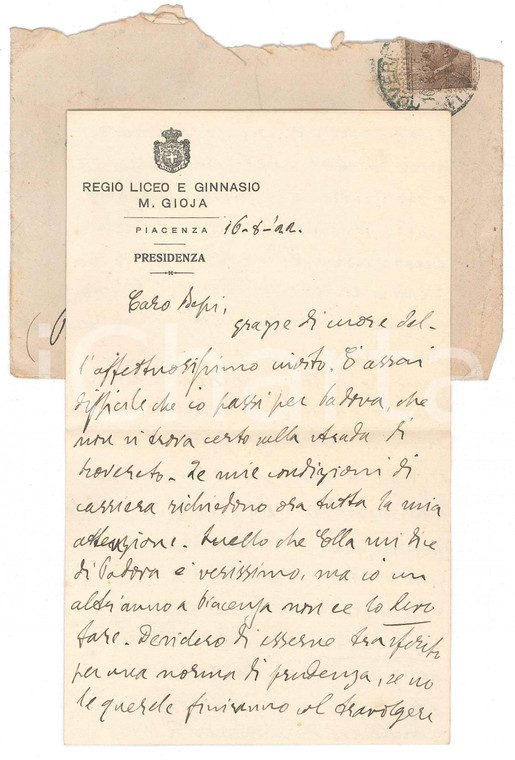 REGIO LICEO E GINNASIO
M. GIOJA
PIACENZA 16-8-'22.
PRESIDENZA
Caro Bepi,
grazie di cuore del-
l'affettuosissimo invito. È assai
difficile che io passi per Padova, che
non si trova certo sulla strada di
Rovereto. Le mie condizioni di
carriera richiedono ora tutta la mia
attenzione. Quello che Ella mi dice
di Padova è verissimo, ma io un
altr'anno a Piacenza non ce lo devo
fare. Desidero di esserne trasferito
per una norma di prudenza, se no
le querele finiranno col travolgere